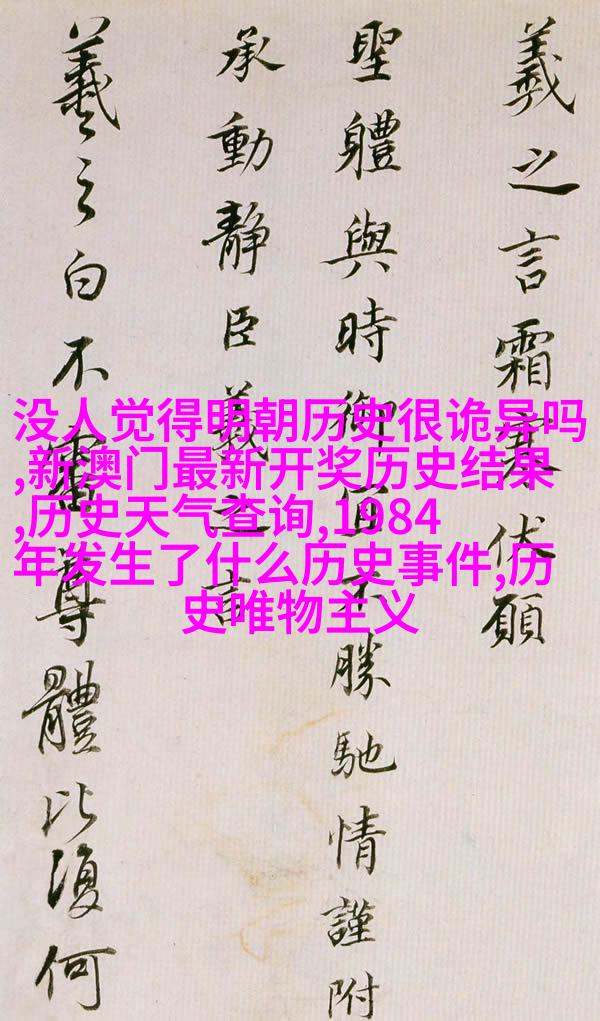 羲之言霜寒伏願
聖體與時御宜不勝馳情謹附
承動靜臣羲之言
羲之白不審尊體比復何
没人觉得明朝历史很诡异吗
,新澳门最新开奖历史结果
,历史天气查询,1984
年发生了什么历史事件,历
史唯物主义